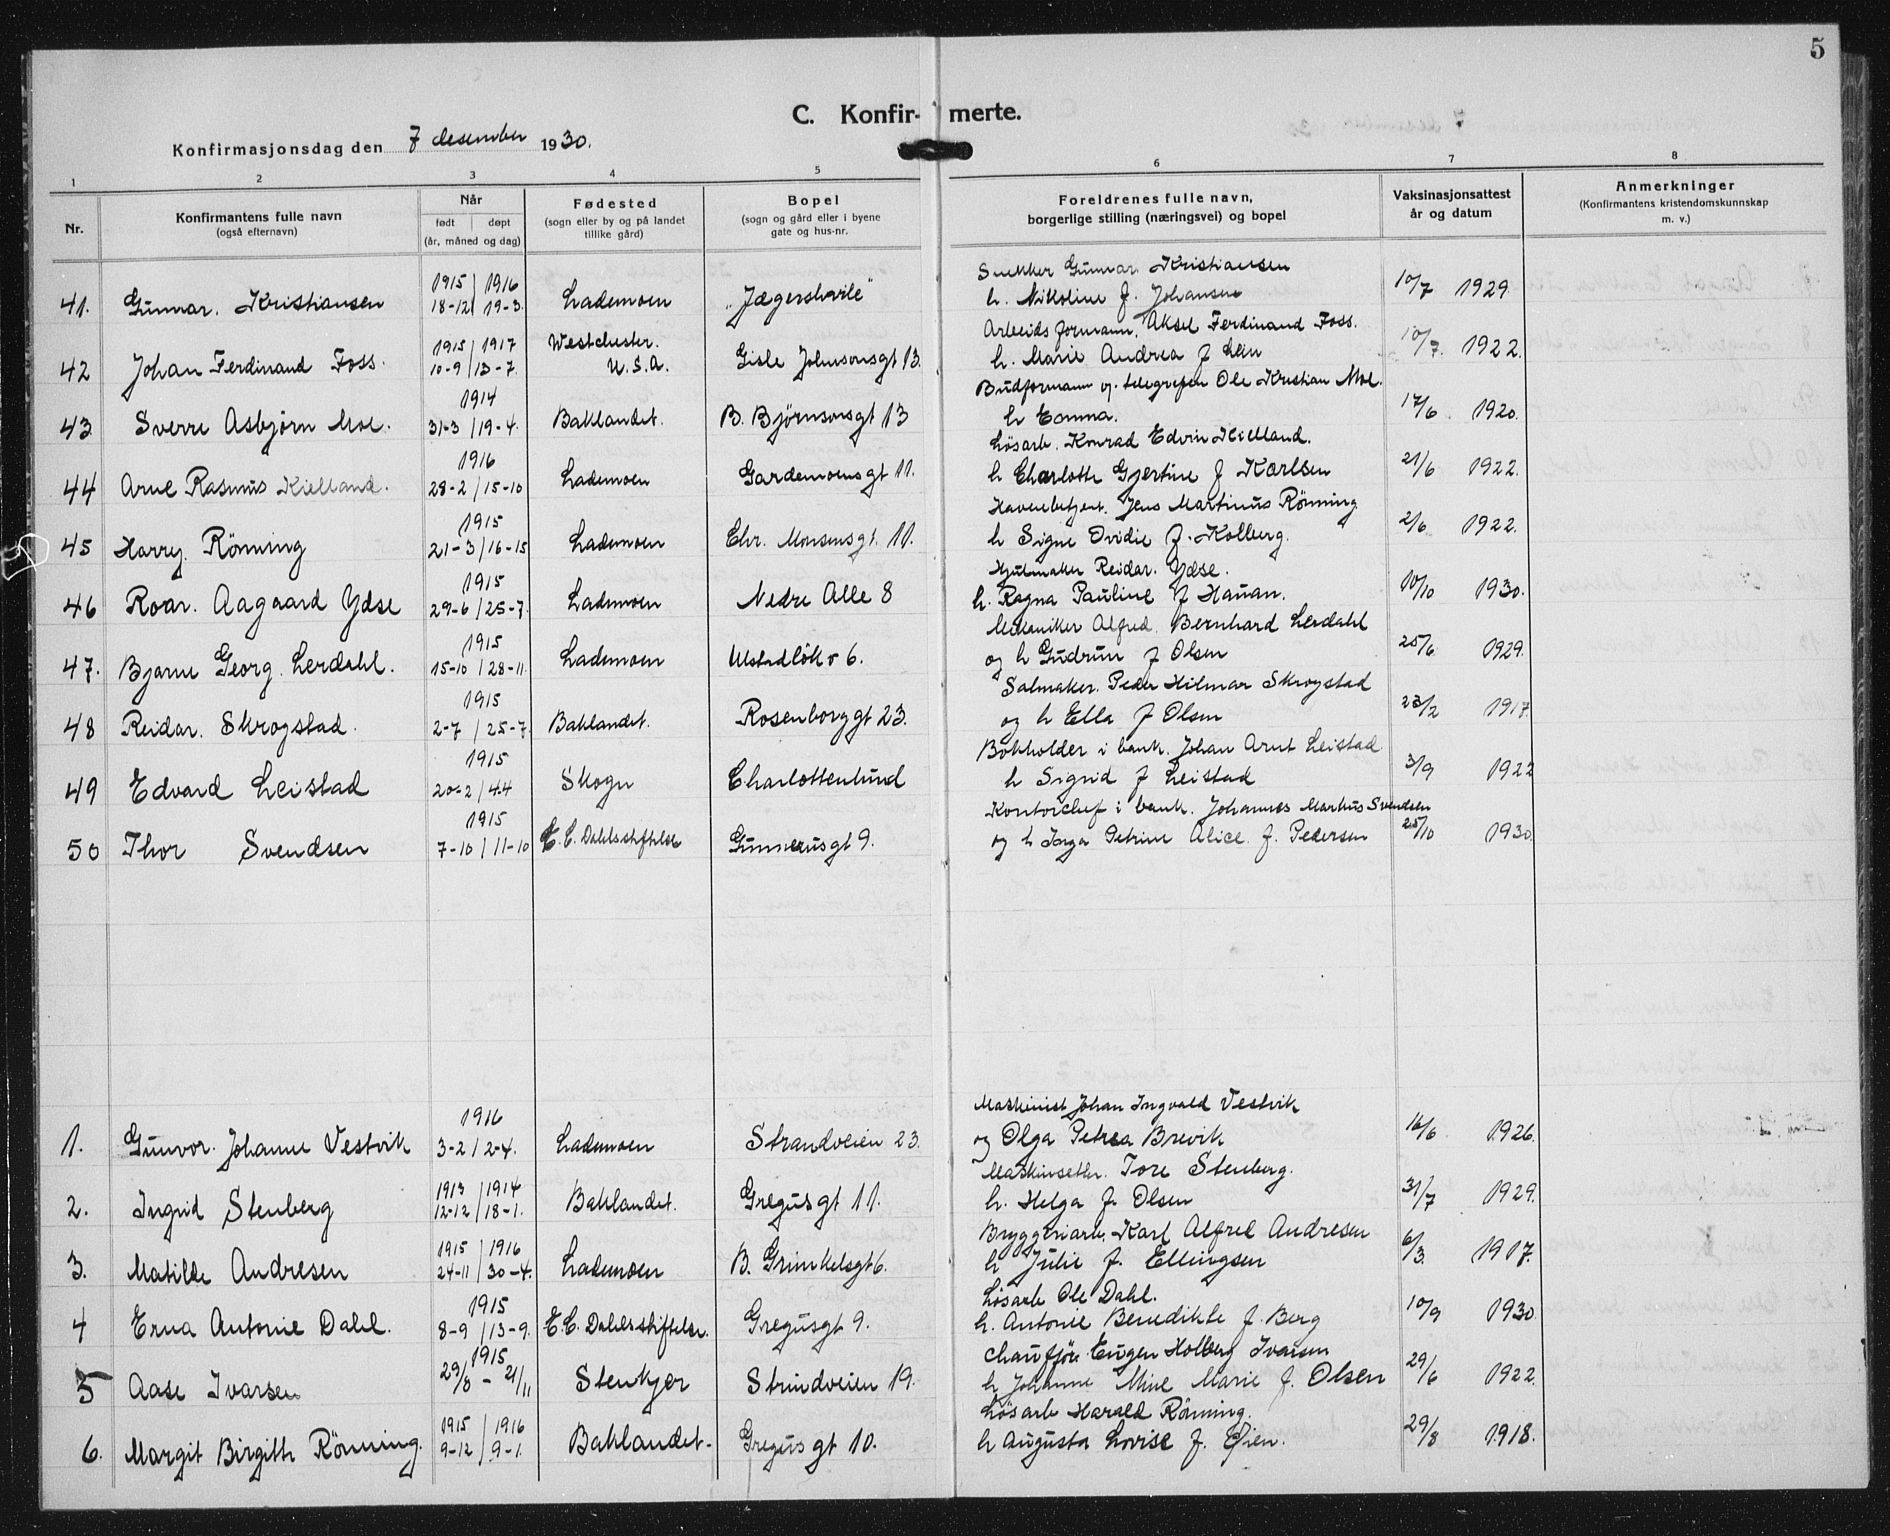 5
C. Konfirmerte.
Konfirmasjonsdag den 7 desember 1930.
1 2 3 4 5 6 7 8
Nr. | Konfirmantens fulle navn (også efternavn) | Når født døpt (år, måned og dag) | Fødested (sogn eller by og på landet tillike gård) | Bopel (sogn og gård eller i byene gate og hus-nr.) | Foreldrenes fulle navn, borgerlige stilling (næringsvei) og bopel | Vaksinasjonsattest år og datum | Anmerkninger (Konfirmantens kristendomskunnskap m. v.)
41. Gunnar. Kristiansen 1915 18-12 / 1916 19-3. Lademoen "Jægershvile" Snekker Gunnar Kristiansen
h. Nikoline f. Johansen 10/7 1929.
42 Johan Ferdinand Foss. 1915 10-9 / 1917 13-7. Westchester. U.S.A. Gisle Johnsonsgt 13. Arbeids formann. Aksel Ferdinand Foss.
h. Marie Andrea f Lein 10/7. 1922.
43. Sverre Asbjørn Moe. 1914 31-3 / 19-4. Baklandet. B. Bjørnsonsgt 13 Budformann v. telegrafen Ole Kristian Moe.
h Emma. 17/6 1920.
44 Arne Rasmus Kielland. 1916 28-2 / 15-10 Lademoen Gardemoensgt 11. Løsarb. Konrad Edvin Kielland.
h Charlotte Gjertine f Karlsen 21/6 1922.
45 Harry. Rönning 1915 21-3 / 16-15 Lademoen Chr. Monsensgt. 11. Havnebetjent. Jens Martinus Rönning
h Signe Ovidie f. Kolberg. 2/6 1922.
46 Roar. Aagaard Ydse 1915 29-6 / 25-7. Lademoen Nedre Alle 8 Hjulmaker Reidar. Ydse.
h. Ragna Pauline f Hauan. 10/10 1930.
47. Bjarne Georg. Lerdahl. 1915 15-10 / 28-11. Lademoen Ulstadlökv 6. Mekaniker Alfred. Bernhard Lerdahl
og h Gudrun f Olsen 25/6 1929.
48 Reidar. Skrogstad. 1915 2-7 / 25-7. Baklandet. Rosenborggt 23. Salmaker. Peder Hilmar Skrogstad
og h Ella f Olsen 23/2 1917.
49 Edvard Leistad 1915 20-2 / 4-4 Skogn Charlottenlund Bokholder i bank. Johan Arnt Leistad
h Sigrid f Leistad 3/9 1922
50 Thor Svendsen 1915 7-10 / 11-10 E. C. Dahlsstiftelse Gunnerusgt 9. Kontorchef i bank. Johannes Markus Svendsen
og h Inga Petrine Alice f. Pedersen 25/10 1930.
1. Gunvor. Johanne Vestvik 1916 3-2 / 2-4. Lademoen Strandveien 23. Maskinist Johan Ingvald Vestvik
og Olga Petrea Brevik 16/6 1926.
2. Ingrid Stenberg 1913 12-12 / 1914 18-1. Baklandet. Gregusgt 11. Maskinsettr. Tore Stenberg.
h. Helga f. Olsen 31/7 1929.
3. Matilde Andresen 1915 24-11 / 1916 30-4. Lademoen B. Grimkelsgt 6. Bryggeriarb. Karl Alfred Andresen
h Julie f. Ellingsen 6/3. 1917.
4 Erna Antonie Dahl. 1915 8-9 / 13-9. E. C. Dahlsstiftelse. Gregusgt 9. Løsarb Ole Dahl.
h. Antonie Benedikte f. Berg 10/9 1930.
5 Aase Ivarsen 1915 29/8 - 21/11 Stenkjer Strindveien 19. Chauffør Eugen Holberg Ivarsen
h Johanne Mine Marie f. Olsen 29/6 1922.
6. Margit Birgitte Rönning. 1915 9-12 / 1916 9-1. Baklandet. Gregusgt 10. Løsarb Harald Rönning.
h Augusta Lovise f. Øien. 29/8 1918.